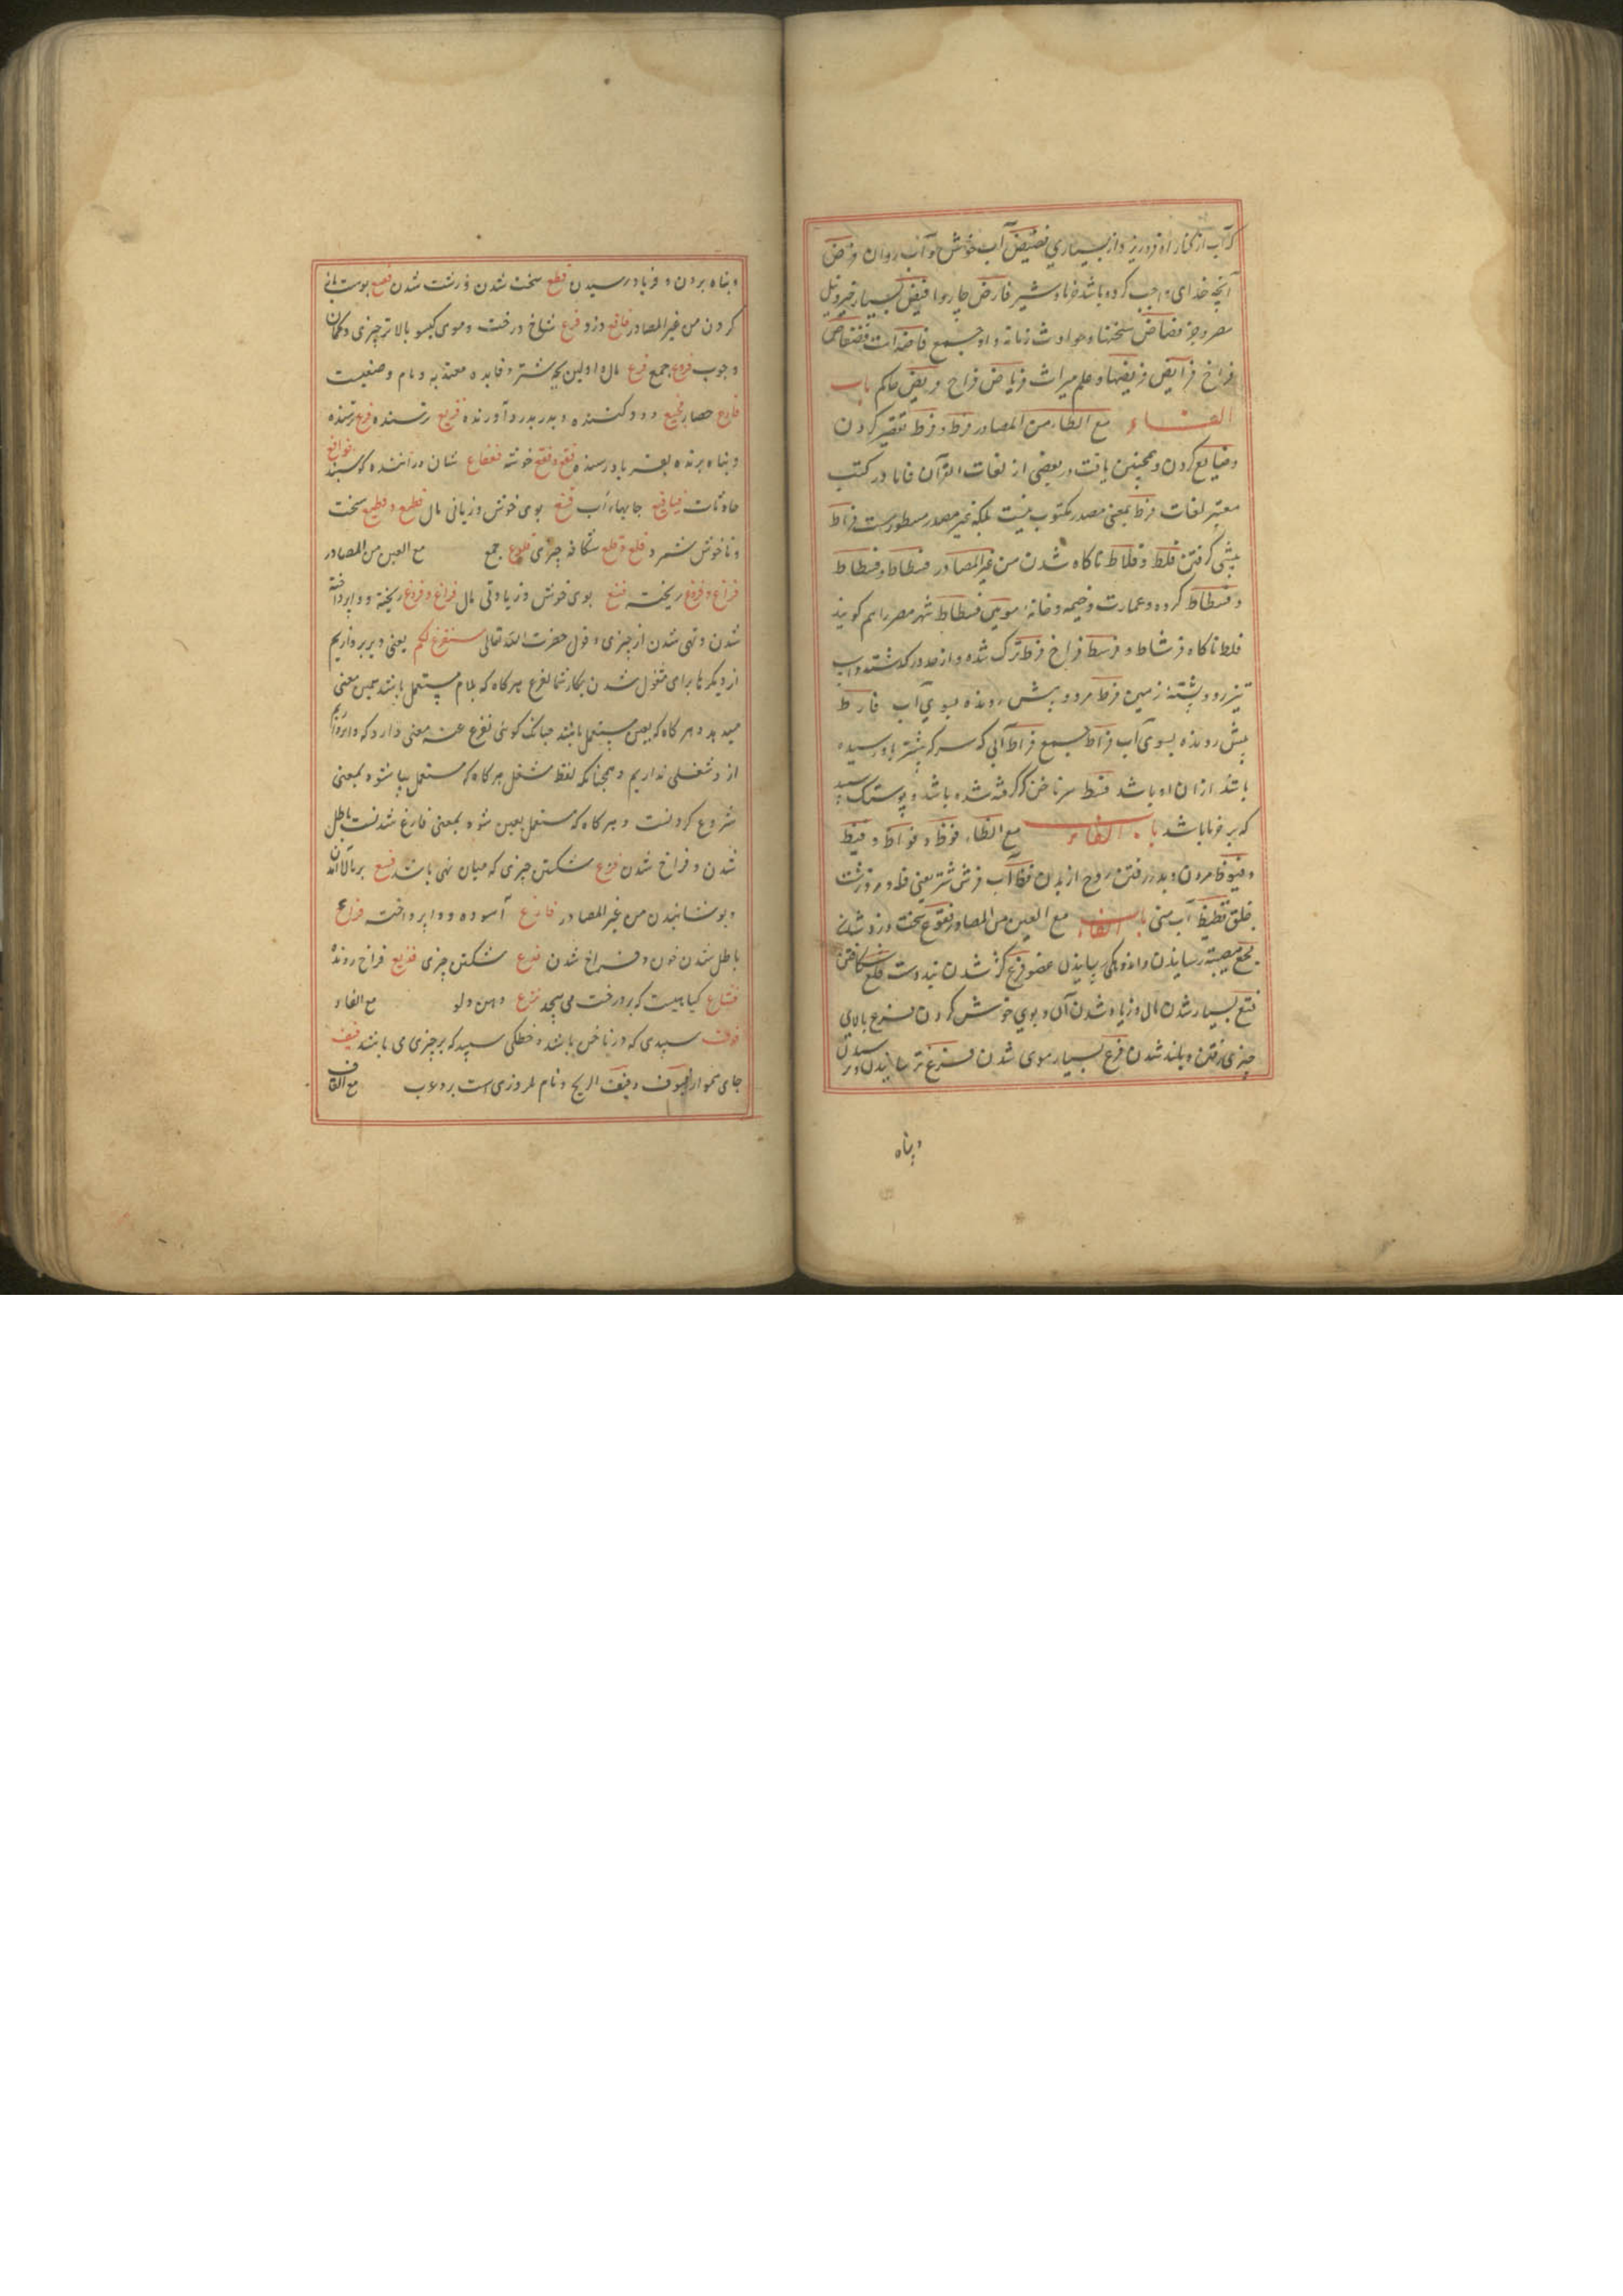 که آب از کنار او فرو ریزد از بسیاری فضیض آب خوش و آب روان فرض
آنچه خدای واجب کرده باشد خرما و شیر فارض چاروا فیض بسیار خیر و نیل
مصر و جز فضاض سختیها و حوادث زمانه و او جمع فاضه است فضفاض
فراخ فرایض فریضها و علم میراث فریاض فراخ و بعض حاکم باب
الفاء مع الطاء من المصادر فرط و فرط تقصیر کردن
و ضایع کردن و همچنین یافت در بعضی از لغات القرآن فاما در کتب
معتبر لغات فرط بمعنی مصدر مکتوب نیست بلکه غیر مصدر مسطورست فراط
پیشی گرفتن فلط و فلاط ناکاه شدن من غیر المصادر فسطاط و فسطاط
و فسطاط کروه و عمارت و خیمه و خانه مویین فسطاط شهر مصر را هم کویند
فلط ناکاه فرشاط و فرسط فراخ فرط ترک شده و از حد در کذشته و اسب
تیز رو و پشته زمین فرط مرد و پیش رونده بسوی آب فارط
پیش رونده بسوی آب فراط جمع فراط آبی که هر که پیشتر باو رسیده
باشد از ان او باشد فسط سر ناخن که گرفته شده باشد و پوستک سپید
که بر خرما باشد باب الفاء مع الظاء فوظ و فواظ و فیظ
و فیوظ مردن و بدر رفتن روح از بدن فظ آب فرش شتر یعنی فظ و مرد زشت
خلق فظیظ آب منی باب الفاء مع العین من المصادر فقوع سخت زرد شدن
فجع مصیبت رسانیدن و اندوهکین رسانیدن عضو فدع کژ شدن بند دست فلع شکافتن
فنع بسیار شدن مال و زیاده شدن آن و بوی خوش کردن فرع بالای
چیزی رفتن و بلند شدن فرع بسیار موی شدن فزع ترسانیدن و ترسیدن
و پناه
و پناه بردن و فریاد رسیدن فظع سخت شدن و زشت شدن فقع پوست
کردن من غیر المصادر فاقع زرد فرع شاخ درخت و موی کیسو بالاتر چیزی و کمان
و چوب فروع جمع فرع مال و اولین بچه شتر و فایده معتد به و نام وضعیست
فارع حصار فجیع درد کننده و بدر بدرد آورنده فزیع ترسنده فزع ترسنده
و پناه برنده بفریاد رسنده فقع و فقع خوشه فعفاع شبان و راننده کوسپند فواقع
حادثات فقاقیع حبابهاء آب فنع بوی خوش و زیادتی مال فظع و فظیع سخت
و ناخوش شمر د فلع و فلع شکافه چیزی فلوع جمع مع الغین من المصادر
فراغ و فروغ ریخت فنغ بوی خوش و زیادتی مال فراغ و فروغ ریخته و وا پرداخته
شدن و تهی شدن از چیزی و قول حضرت الله تعالی سنفرغ لکم یعنی و بپردازیم
از دیگرها برای مشغول شدن بکار شما لفرغ هرکاه که بلام مستعمل باشد همین معنی
میدهد و هر کاه که بعن مستعمل باشد چنانک کوئی نفرغ عنه معنی دارد که وا پردازیم
از و شغلی نداریم و همچنانکه لفظ شغل هرکاه که مستعمل بیا شود بمعنی
شروع کردنست و هرکاه که مستعمل بعن شود بمعنی فارغ شدنست باطل
شدن و فراخ شدن فدغ شکستن چیزی که میان تهی باشد فشغ بر بالا آمدن
و پوشانیدن من غیر المصادر فارغ آسوده و وا پرداخت فراغ
باطل شدن خون و فراخ شدن فدغ شکستن چیزی فریغ فراخ رونده
فشاغ کیاهیست که بر درخت می پیچد فرغ دهن دلو مع الفاء
فوف سپیدی که در ناخن باشد و خطکی سپید که بر چیزی می باشد فیف
جای هموار فیوف و فیف الریح و نام لروزی است بر عرب مع القاف